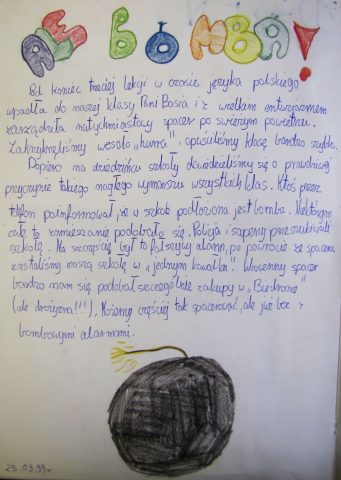 ALE BOMBA!
Pod koniec trzeciej lekcji w czasie języka polskiego
wpadła do naszej klasy Pani Basia i z wielkim entuzjazmem
zarządziła natychmiastowy spacer po świeżym powietrzu.
Zakrzyknęliśmy wesoło „hurra", i opuściliśmy klasę bardzo szybko.
Dopiero na dziedzińcu szkoły dowiedzieliśmy się o prawdziwej
przyczynie takiego nagłego wymarszu wszystkich klas. Ktoś przez
telefon poinformował, że w szkole podłożona jest bomba. Niektórym
całe to zamieszanie podobało się. Policja i saperzy przeszukiwali
szkołę. Na szczęście był to fałszywy alarm, po powrocie ze spaceru
zastaliśmy naszą szkołę w „jednym kawałku". Wiosenny spacer
bardzo nam się podobał szczególnie zakupy w „Biedronce"
(ale drożyzna!!!). Możemy częściej tak spacerować, ale już bez
bombowymi alarmami.
23.03.99r